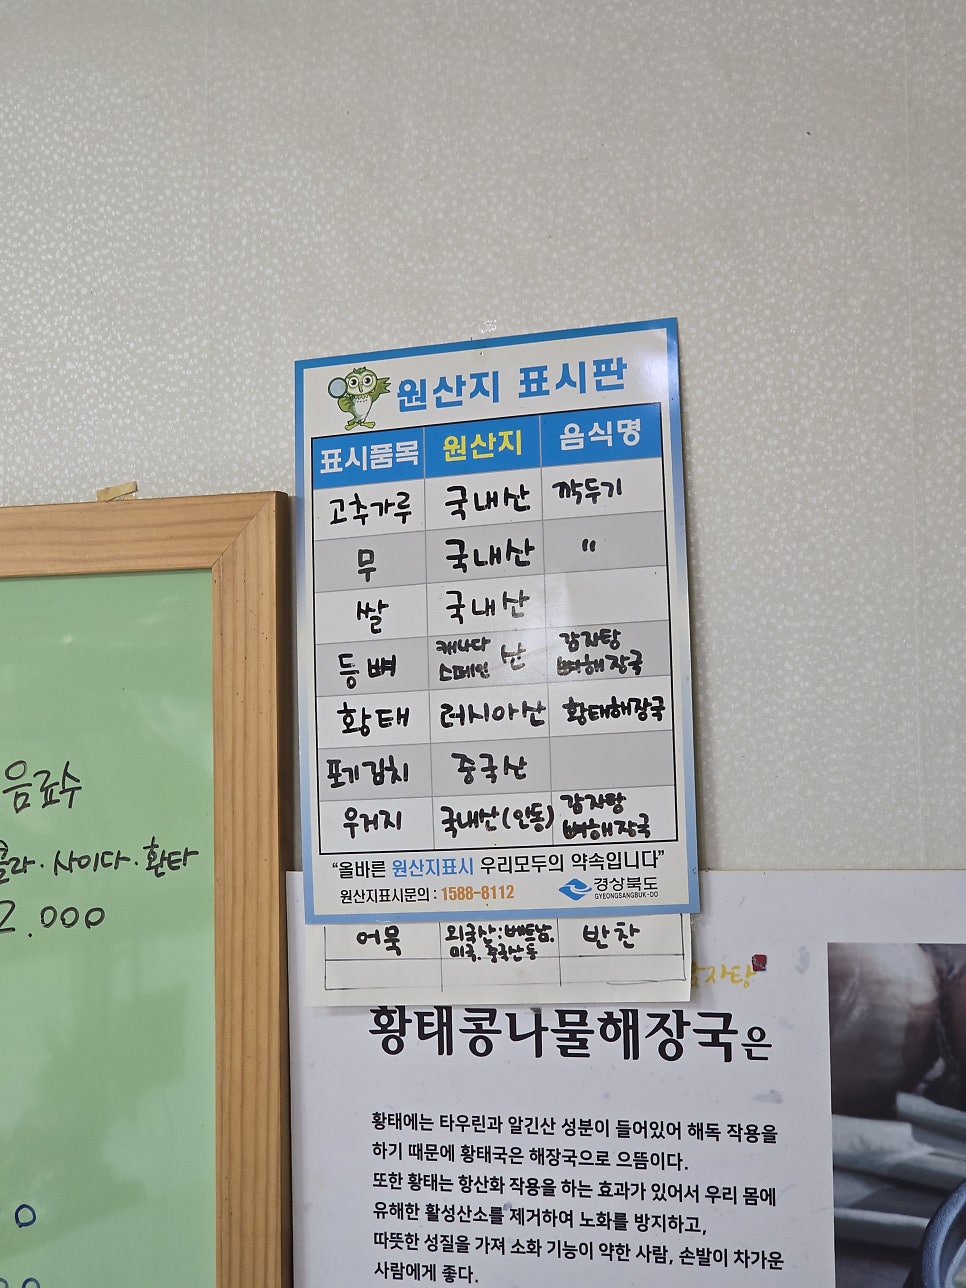 원산지 표시판
표시품목 원산지 음식명
고추가루 국내산 깍두기
무 국내산 "
쌀 국내산
등뼈 캐나다 스페인 산 감자탕 뼈해장국
황태 러시아산 황태해장국
포기김치 중국산
우거지 국내산(안동) 감자탕 뼈해장국
"올바른 원산지표시 우리모두의 약속입니다"
원산지표시문의 : 1588-8112
경상북도
GYEONGSANGBUK-DO
어묵 외국산:베트남. 미국. 중국산 등 반찬
음료수
콜라·사이다·환타
2.000
감자탕
황태콩나물해장국은
황태에는 타우린과 알긴산 성분이 들어있어 해독 작용을
하기 때문에 황태국은 해장국으로 으뜸이다.
또한 황태는 항산화 작용을 하는 효과가 있어서 우리 몸에
유해한 활성산소를 제거하여 노화를 방지하고,
따뜻한 성질을 가져 소화 기능이 약한 사람, 손발이 차가운
사람에게 좋다.